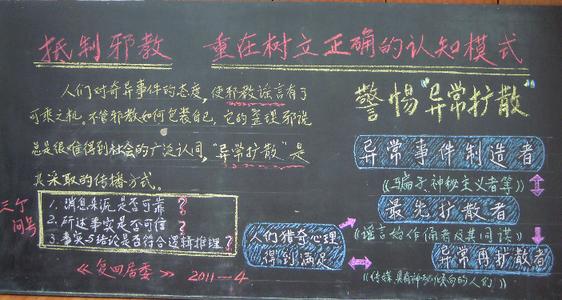 抵制邪教 重在树立正确的认知模式
人们对奇异事件的态度，使邪教谣言有了
可乘之机，不管邪教如何包装自己，它的歪理邪说
总是很难得到社会的广泛认同，"异常扩散"是
其采取的传播方式。
三个问号
1. 消息来源是否可靠?
2. 所述事实是否可信?
3. 事实与结论是否符合逻辑推理?
《复四居委》 2011-4
警惕"异常扩散"
异常事件制造者
《骗子神秘主义者等》
最先扩散者
《谣言始作俑者及共同谋》
异常再扩散者
《传媒 具有神秘倾向的人们》
人们猎奇心理
得到满足